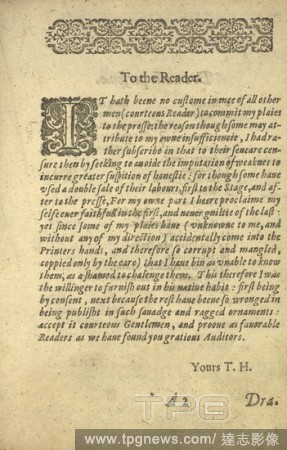 To the Reader.
IT hath beene no custome in mee of all other
men (courteous Reader) to commit my plaies
to the presse: the reason though some may at-
tribute to my owne insufficiencie, I had ra-
ther subscribe in that to their seueare cen-
sure then by seeking to auoide the imputation of weaknes to
incurre greater suspition of honestie: for though some haue
vsed a double sale of their labours, first to the Stage, and af-
ter to the presse, For my owne part I heere proclaime my
selfe euer faithfull in the first, and neuer guiltie of the last:
yet since some of my plaies haue (vnknowne to me, and
without any of my direction) accidentally come into the
Printers hands, and therefore so corrupt and mangled,
(coppied only by the eare) that I haue bin as vnable to know
them, as ashamed to chalenge them. This therefore I was
the willinger to furnish out in his natiue habit: first being
by consent, next because the rest haue beene so wronged in
being publisht in such sauadge and ragged ornaments:
accept it courteous Gentlemen, and prooue as fauorable
Readers as we haue found you gratious Auditors.
Yours T. H.
A 2
Dra.
TPG
www.tpgnews.com / 達志影像